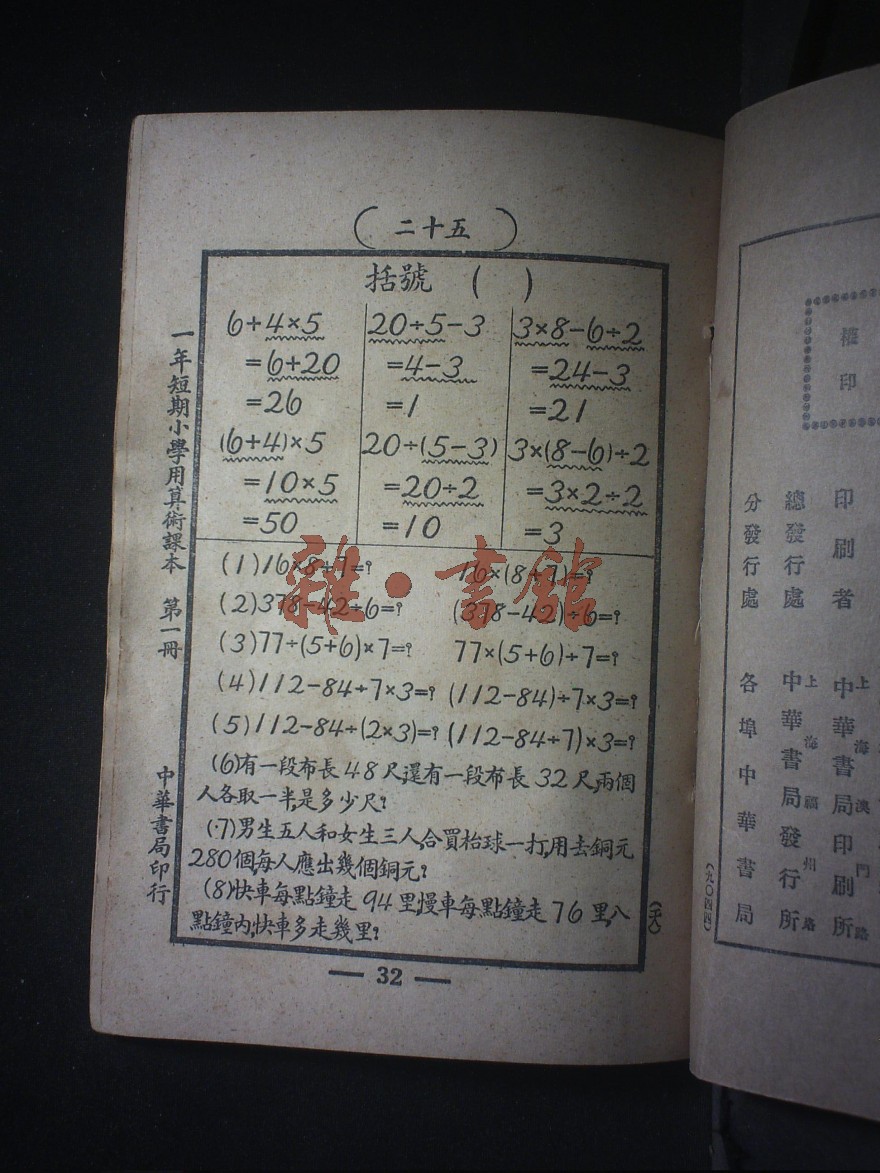 （二十五）
括號（ ）
6+4×5
=6+20
=26
20÷5-3
=4-3
=1
3×8-6÷2
=24-3
=21
(6+4)×5
=10×5
=50
20÷(5-3)
=20÷2
=10
3×(8-6)÷2
=3×2÷2
=3
(1)16×8÷7=? 16×(8+7)=?
(2)378-42÷6=? (378-42)÷6=?
(3)77÷(5+6)×7=? 77×(5+6)÷7=?
(4)112-84÷7×3=? (112-84)÷7×3=?
(5)112-84÷(2×3)=? (112-84÷7)×3=?
(6)有一段布長48尺,還有一段布長32尺,兩個
人各取一半,是多少尺?
(7)男生五人和女生三人,合買枱球一打,用去銅元
280個,每人應出幾個銅元?
(8)快車每點鐘走94里,慢車每點鐘走76里,八
點鐘內,快車多走幾里?
— 32 —
一年短期小學用算術課本 第一冊
中華書局印行
雜·書館
印刷者 上海澳門路 中華書局印刷所
總發行處 上海福州路 中華書局發行所
分發行處 各埠中華書局
(九〇四四)